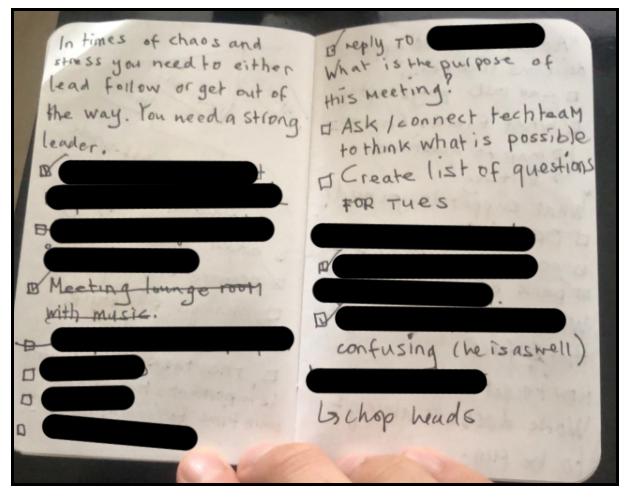 In times of chaos and
stress you need to either
lead follow or get out of
the way. You need a strong
leader.
Meeting lounge room
with music.
reply TO
What is the purpose of
this Meeting?
Ask/connect tech team
to think what is possible
Create list of questions
FOR TUES
confusing (he is as well)
↳ chop heads